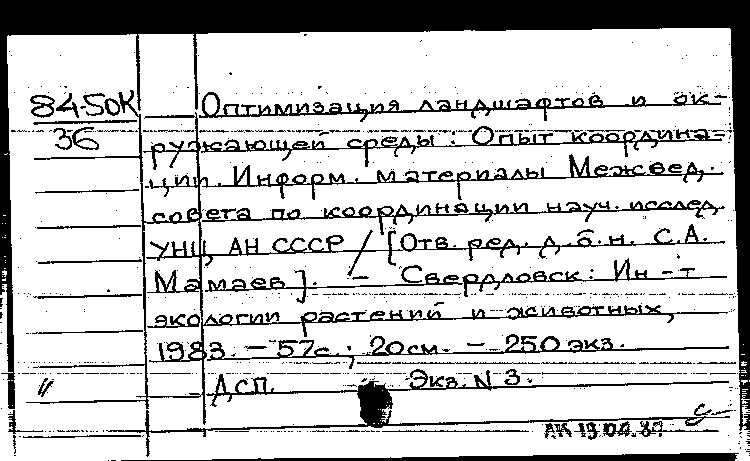 84-50К
36
Оптимизация ландшафтов и ок-
ружающей среды: Опыт координа-
ции. Информ. материалы Межвед.
совета по координации науч. исслед.
УНЦ АН СССР / [Отв. ред. д.б.н. С.А.
Мамаев]. – Свердловск: Ин-т
экологии растений и животных,
1983. – 57с.; 20см. – 250 экз.
Дсп. Экз. N 3.